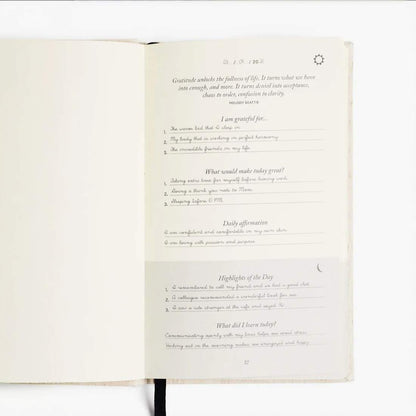 Gratitude unlocks the fullness of life. It turns what we have
into enough, and more. It turns denial into acceptance,
chaos to order, confusion to clarity.
MELODY BEATTIE
I am grateful for...
1. The warm bed that I sleep in
2. My body that is working in perfect harmony
3. The incredible friends in my life
What would make today great?
1. Taking extra time for myself before leaving work
2. Giving a thank you note to Mom
3. Sleeping before 11 PM
Daily affirmation
I am confident and comfortable in my own skin
I am living with passion and purpose
Highlights of the Day
1. I remembered to call my friend and we had a great chat
2. A colleague recommended a wonderful book for me
3. I saw a cute stranger at the cafe and said hi
What did I learn today?
Communicating openly with my boss helps me avoid stress
Working out in the morning makes me energized and happy